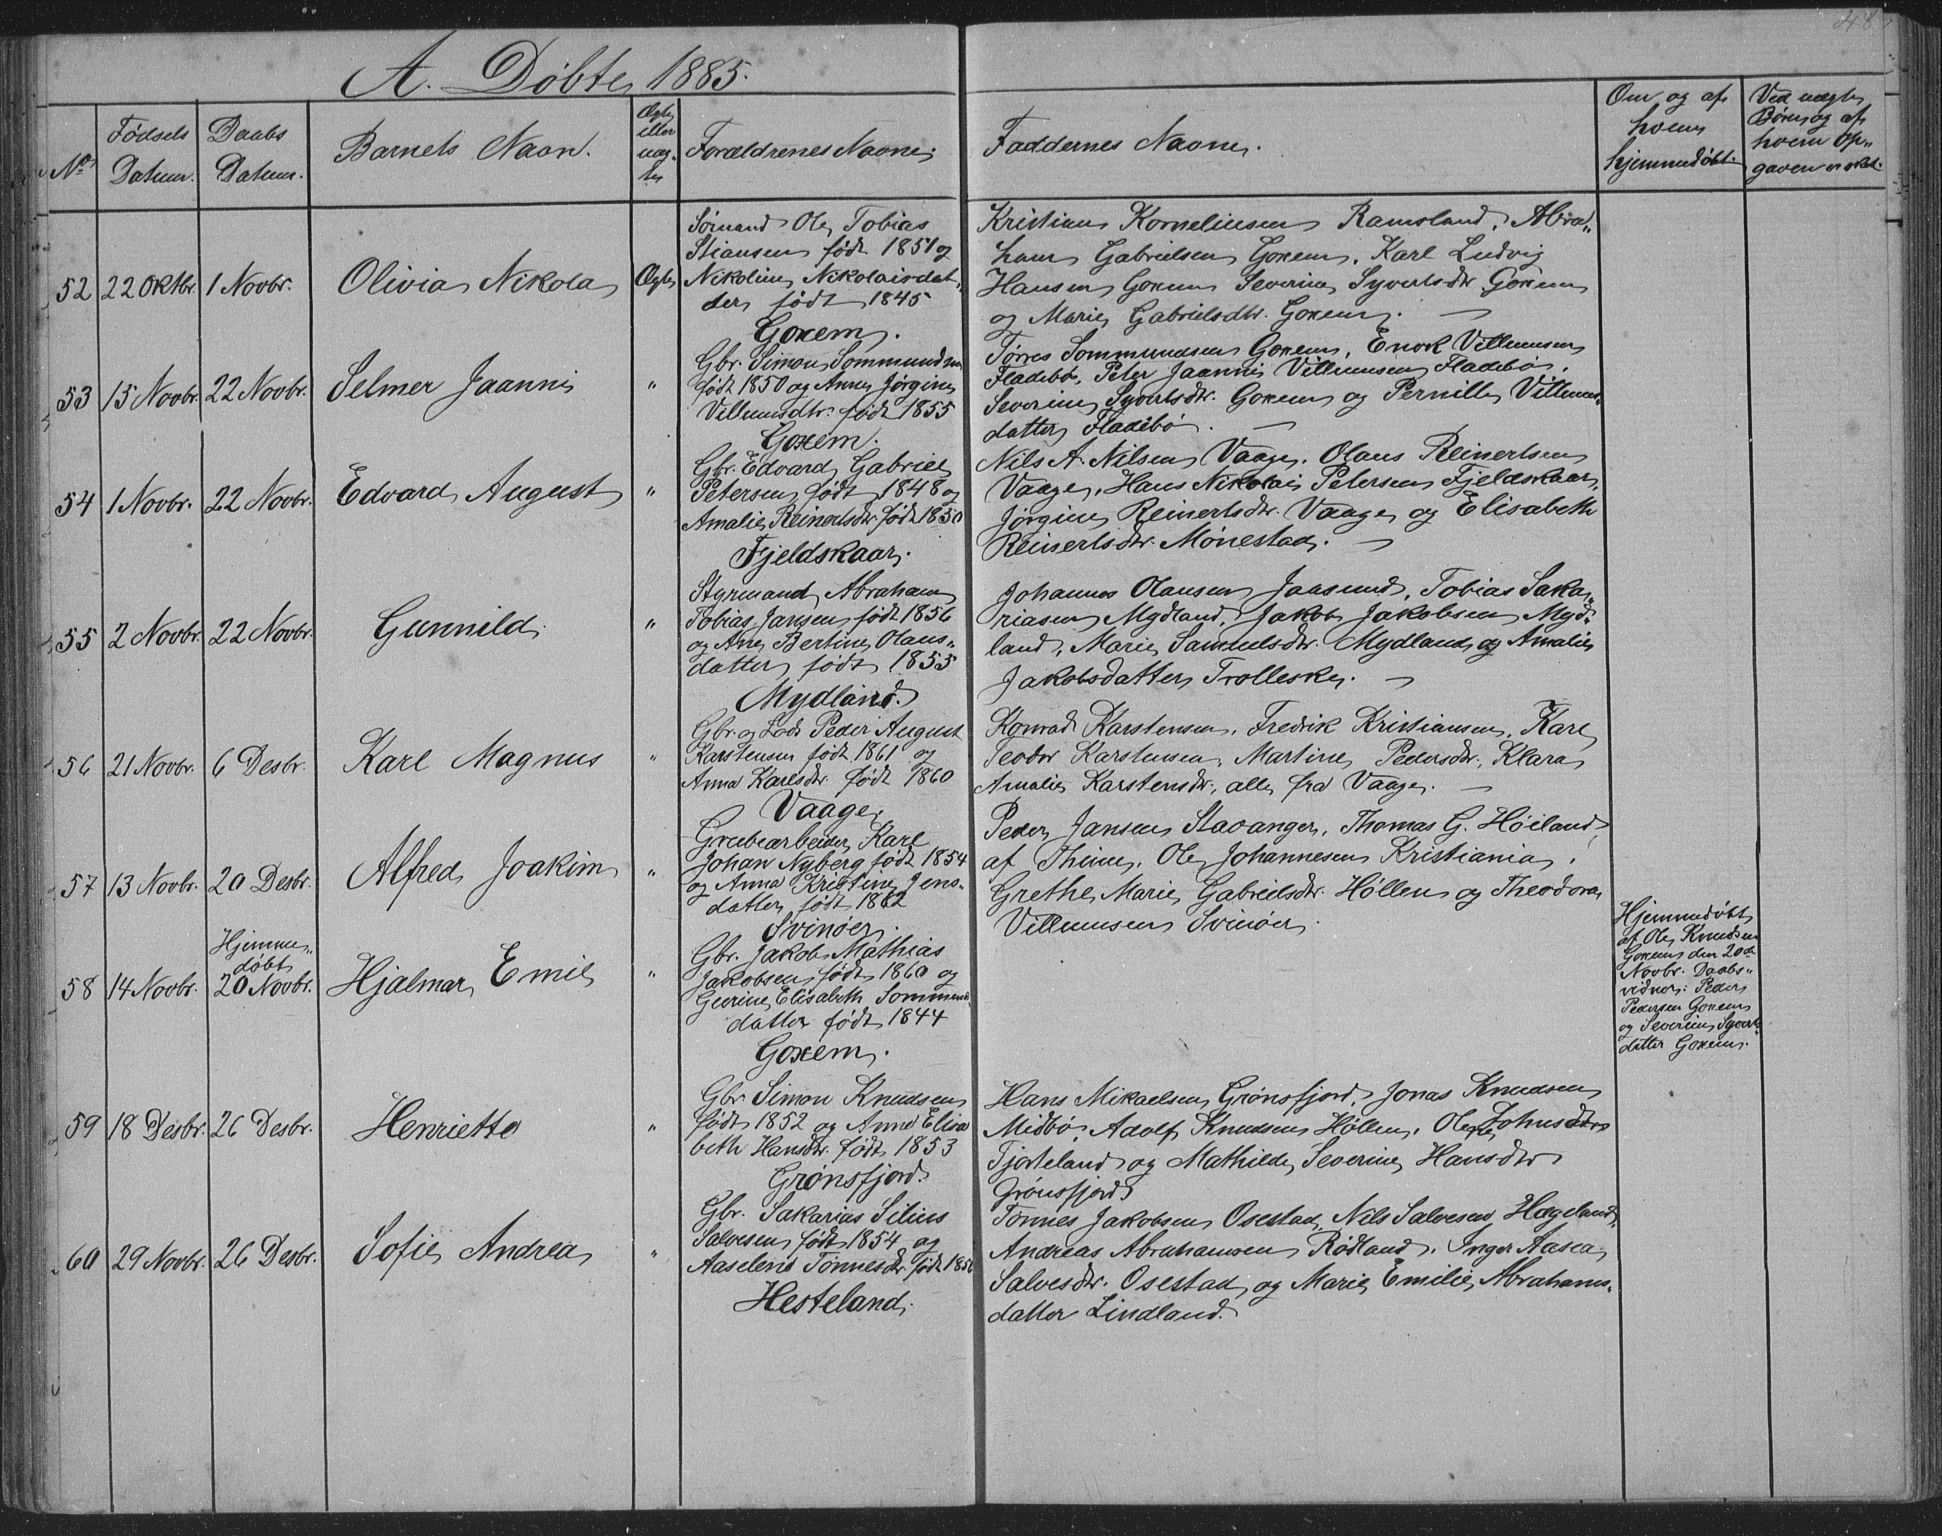 48
A. Døbte, 1885.
No
Fødsels Datum.
Daabs Datum.
Barnets Navn.
Ægte eller uæg- te
Forældrenes Navne.
Faddernes Navne.
Om og af hvem hjemmedøbt.
Ved uægte Børn, og af hvem Op- gaven er sket.
52 22 Oktbr. 1 Novbr. Olivia Nikola Ægte
Sömand Ole Tobias
Stiansen født 1851 og
Nikoline Nikolaisdat-
der født 1845
Gonem.
Kristian Korneliusen Ramsland, Abra-
ham Gabrielsen Gonem, Karl Ludvig
Hansen Gonem Severine Syvertsdtr. Gonem
og Marie Gabrielsdtr. Gonem. —
53 15 Novbr. 22 Novbr. Selmer Jaannis "
Gbr. Simon Sommundsen
født 1850 og Anne Jørgine
Villumsdtr. født 1855
Gonem.
Tørres Sommundsen Gonem, Enok Villumsen
Fladebø, Peter Jaannis Villumsen Fladebø,
Severine Syvertsdtr. Gonem og Pernille Villums-
datter Fladebø. —
54 1 Novbr. 22 Novbr. Edvard August "
Gbr. Edvard Gabriel
Petersen født 1848 og
Amalie Reinertsdtr. født 1850
Fjeldskaar.
Nils A. Nilsen Vaage, Olaus Reinertsen
Vaage, Hans Nikolai Petersen Fjeldskaar,
Jørgine Reinertsdtr. Vaage og Elisabeth
Reinertsdtr. Mønestad. —
55 2 Novbr. 22 Novbr. Gunnild "
Styrmand Abraham
Tobias Jansen født 1856
og Ane Bertine Olaus-
datter født 1855
Mydland.
Johannes Olausen Jaasund, Tobias Saka-
riasen Mydland, Jakob Jakobsen Myd-
land, Marie Samuelsdtr. Mydland og Amalie
Jakobsdatter Trolleske. —
56 21 Novbr. 6 Desbr. Karl Magnus "
Gbr. og Lods Peder August
Karstensen født 1861 og
Anna Karlsdtr. født 1860
Vaage.
Konrad Karstensen, Fredrik Kristiansen, Karl
Teodor Karstensen, Martine Pedersdtr., Klara
Amalie Karstensdtr., alle fra Vaage. —
57 13 Novbr. 20 Desbr. Alfred Joakim "
Grubearbeider Karl
Johan Nyberg født 1854
og Anna Kristine Jens-
datter født 1862
Svinøer.
Peder Jansen Stavanger, Thomas G. Høiland
af Thime, Ole Johannesen Kristiania,
Grethe Marie Gabrielsdtr. Høllen og Theodora
Villumsen Svinøer.
58 14 Novbr. Hjemme- døbt 20 Novbr. Hjalmar Emil "
Gbr. Jakob Mathias
Jakobsen født 1860 og
Gurine Elisabeth Sommunds-
datter født 1844
Gonem.
Hjemmedøbt
af Ole Knudsen
Gonem den 20de
Novbr. Daabs-
vidner: Peder
Pedersen Gonem
og Severine Syverts-
datter Gonem.
59 18 Desbr. 26 Desbr. Henriette "
Gbr. Simon Knudsen
født 1852 og Anne Elisa
beth Hansdtr. født 1853
Grønsfjord.
Hans Mikaelsen Grønsfjord, Jonas Knudsen
Midbø, Adolf Knudsen Høllen, Johnsdtr.
Tjorteland og Mathilde Severine Hansdtr.
Grønsfjord.
60 29 Novbr. 26 Desbr. Sofie Andrea "
Gbr. Sakarias Silius
Salvesen født 1854 og
Aaselene Tønnesdtr. født 1850
Hesteland.
Tønnes Jakobsen Osestad, Nils Salvesen Hageland,
Andreas Abrahamsen Rødland, Inger Aasea
Salvesdtr. Osestad og Marie Emilie Abrahams-
datter Lindland.